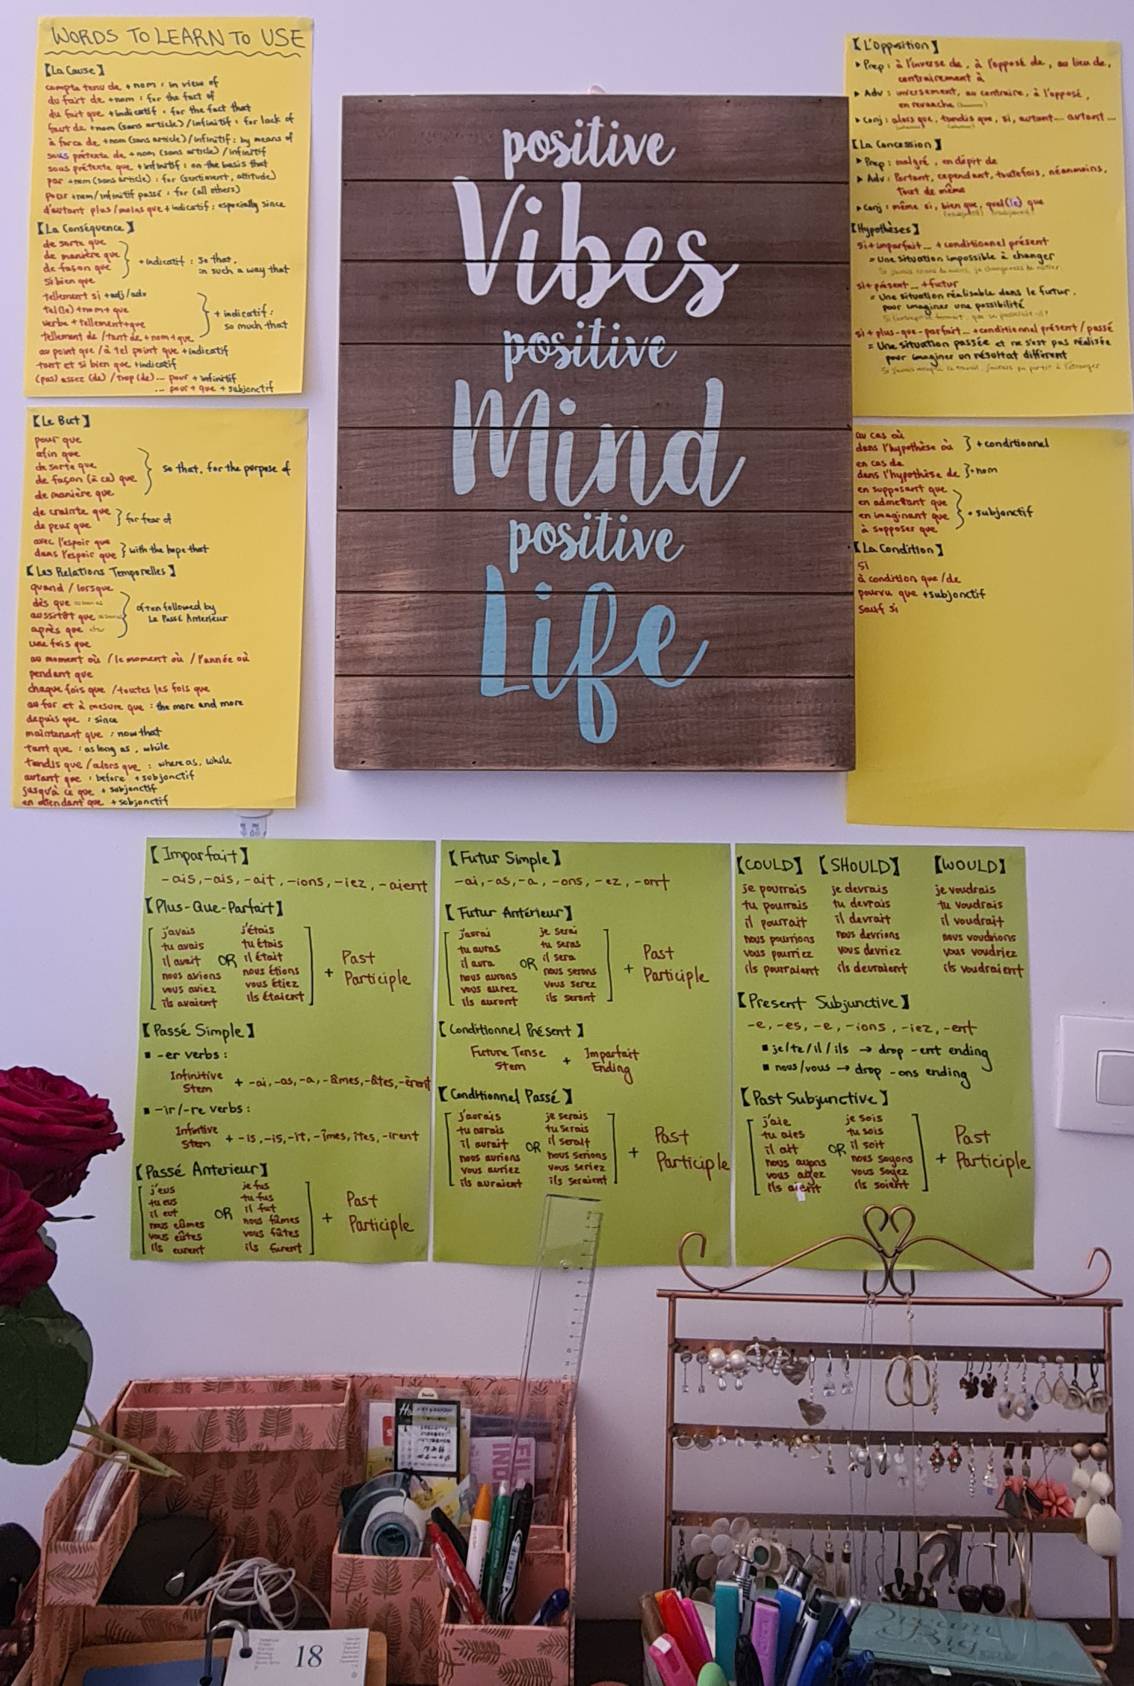 WORDS TO LEARN TO USE
【La Cause】
compte tenu de + nom : in view of
du fait de + nom : for the fact of
du fait que + indicatif : for the fact that
faut de + nom (sans article) / infinitif : for lack of
à force de + nom (sans article) / infinitif : by means of
sous prétexte de + nom (sans article) / infinitif
sous prétexte que + infinitif : on the basis that
par + nom (sans article) : for (sentiment, attitude)
pour + nom / infinitif passé : for (all others)
d'autant plus / moins que + indicatif : especially since
【La Conséquence】
de sorte que
de manière que
de façon que
si bien que
+ indicatif : so that,
in such a way that
tellement si + adj/adv
tel(le) + nom + que
verbe + tellement + que
tellement de / tant de + nom + que
+ indicatif :
so much that
au point que / à tel point que + indicatif
tant et si bien que + indicatif
(pas) assez (de) / trop (de) ... pour + infinitif
... pour + que + subjonctif
【Le But】
pour que
afin que
de sorte que
de façon (à ce) que
de manière que
so that, for the purpose of
de crainte que
de peur que
for fear of
avec l'espoir que
dans l'espoir que
with the hope that
【Les Relations Temporelles】
quand / lorsque
dès que
aussitôt que
après que
often followed by
Le Passé Anterieur
une fois que
au moment où / le moment où / l'année où
pendant que
chaque fois que / toutes les fois que
au fur et à mesure que : the more and more
depuis que : since
maintenant que : now that
tant que : as long as, while
tandis que / alors que : where as, while
avant que : before + subjonctif
jusqu'à ce que + subjonctif
en attendant que + subjonctif
positive
Vibes
positive
Mind
positive
Life
【L'Opposition】
▸ Prep : à l'inverse de, à l'opposé de, au lieu de,
contrairement à
▸ Adv : inversement, au contraire, à l'opposé,
en revanche
▸ Conj : alors que, tandis que, si, autant... autant...
【La Concession】
▸ Prep : malgré, en dépit de
▸ Adv : Pourtant, cependant, toutefois, néanmoins,
tout de même
▸ Conj : même si, bien que, quel(le) que
【Hypothèses】
si + imparfait ... + conditionel présent
= Une situation impossible à changer
si + présent ... + futur
= Une situation réalisable dans le futur,
pour imaginer une possibilité
si + plus-que-parfait ... + conditionel présent / passé
= Une situation passée et ne s'est pas réalisée
pour imaginer un résultat différent
au cas où
dans l'hypothèse où
+ conditionnel
en cas de
dans l'hypothèse de
+ nom
en supposant que
en admettant que
en imaginant que
à supposer que
+ subjonctif
【La Condition】
si
à condition que / de
pourvu que + subjonctif
sauf si
【Imparfait】
-ais, -ais, -ait, -ions, -iez, -aient
【Plus-Que-Parfait】
j'avais j'étais
tu avais tu étais
il avait OR il était
nous avions nous étions
vous aviez vous étiez
ils avaient ils étaient
+ Past
Participle
【Passé Simple】
▪ -er verbs :
Infinitive
Stem
+ -ai, -as, -a, -âmes, -âtes, -èrent
▪ -ir/-re verbs :
Infinitive
Stem
+ -is, -is, -it, -îmes, îtes, -irent
【Passé Anterieur】
j'eus je fus
tu eus tu fus
il eut OR il fut
nous eûmes nous fûmes
vous eûtes vous fûtes
ils eurent ils furent
+ Past
Participle
【Futur Simple】
-ai, -as, -a, -ons, -ez, -ont
【Futur Antérieur】
j'aurai je serai
tu auras tu seras
il aura OR il sera
nous aurons nous serons
vous aurez vous serez
ils auront ils seront
+ Past
Participle
【Conditionnel Présent】
Future Tense
Stem
+ Imparfait
Ending
【Conditionnel Passé】
j'aurais je serais
tu aurais tu serais
il aurait OR il serait
nous aurions nous serions
vous auriez vous seriez
ils auraient ils seraient
+ Past
Participle
【COULD】 【SHOULD】 【WOULD】
je pourrais je devrais je voudrais
tu pourrais tu devrais tu voudrais
il pourrait il devrait il voudrait
nous pourrions nous devrions nous voudrions
vous pourriez vous devriez vous voudriez
ils pourraient ils devraient ils voudraient
【Present Subjunctive】
-e, -es, -e, -ions, -iez, -ent
▪ je/te/il/ils → drop -ent ending
▪ nous/vous → drop -ons ending
【Past Subjunctive】
j'aie je sois
tu aies tu sois
il ait OR il soit
nous ayons nous soyons
vous ayez vous soyez
ils aient ils soient
+ Past
Participle
18